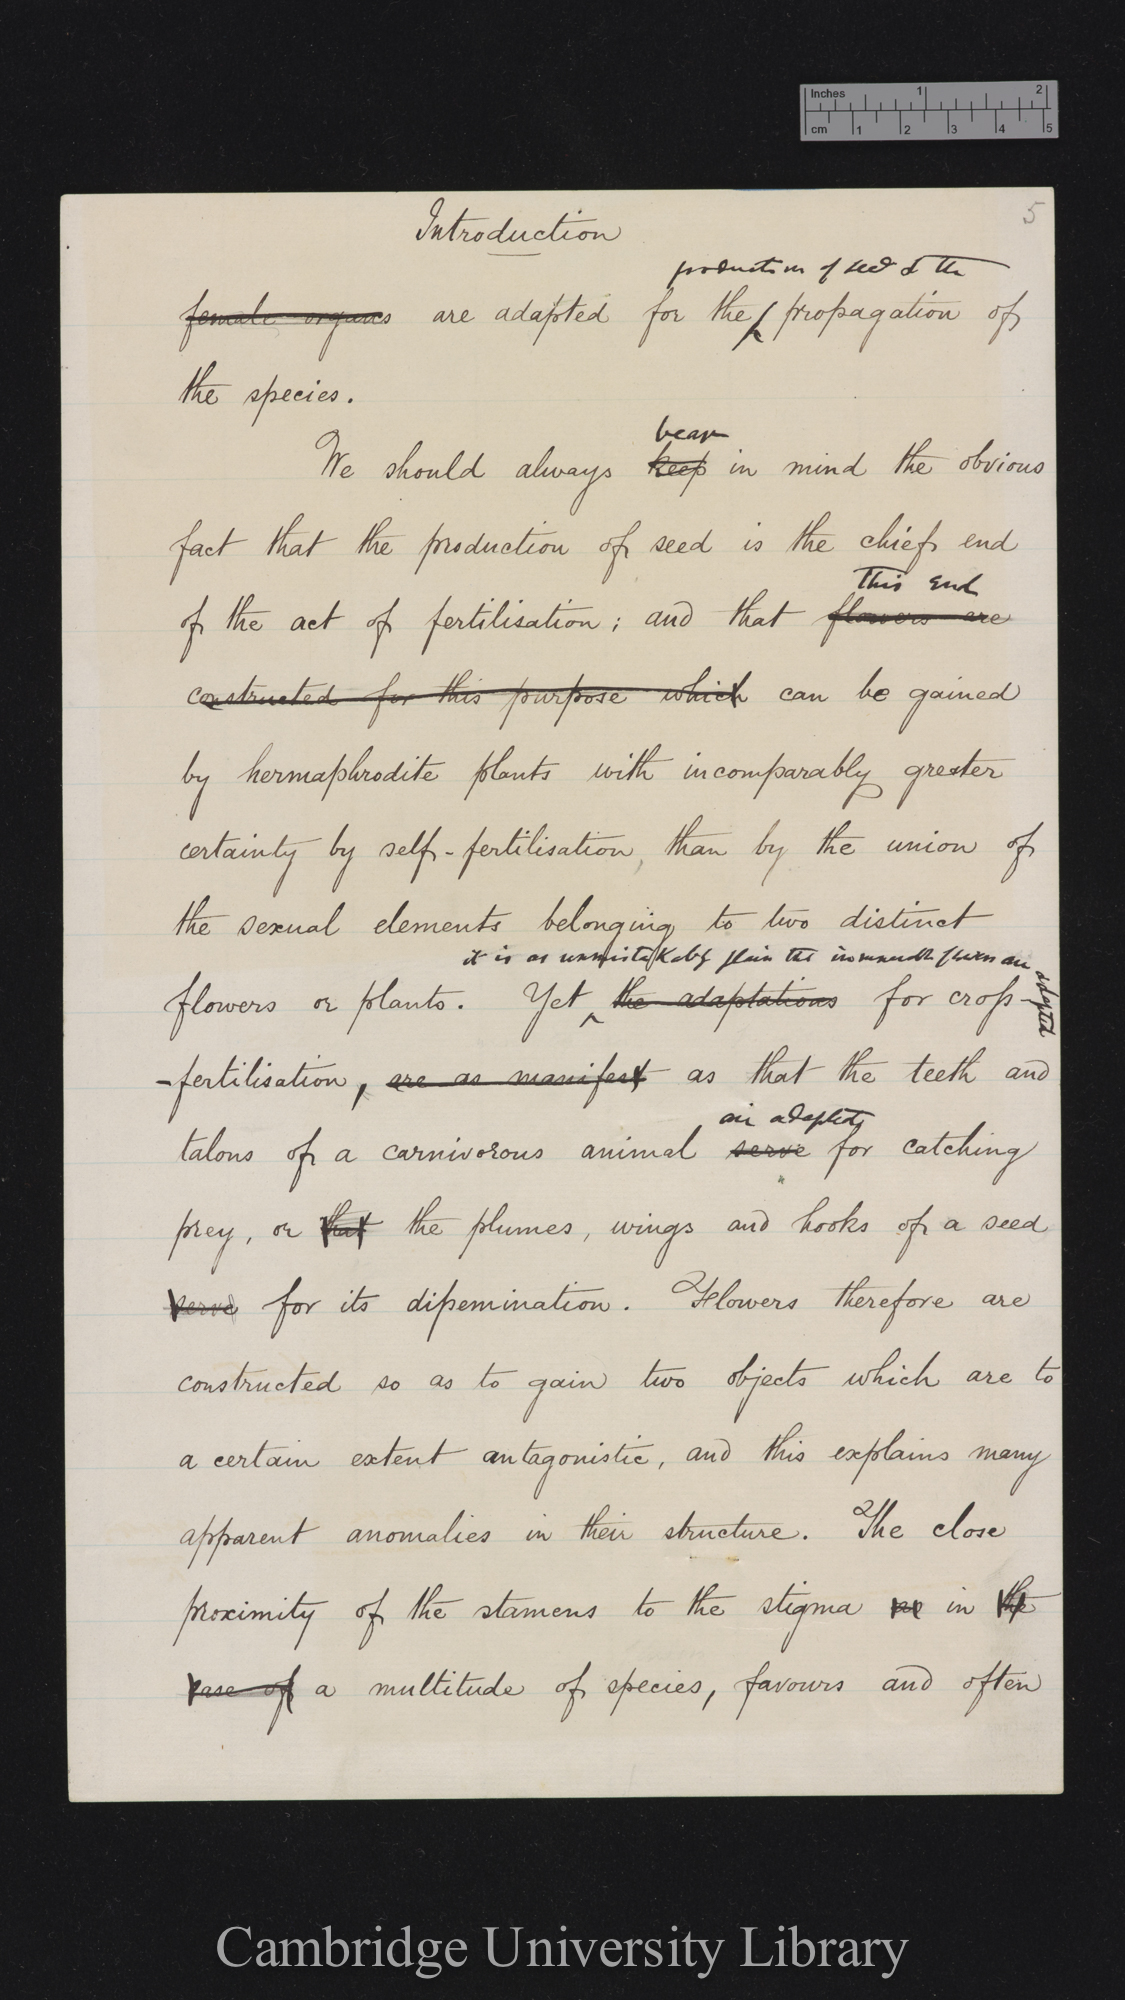 Inches 1 2
cm 1 2 3 4 5
5
Introduction
production of seed & the
female organs are adapted for the propagation of
the species.
bear
We should always keep in mind the obvious
fact that the production of seed is the chief end
This end
of the act of fertilisation; and that flowers are
constructed for this purpose which can be gained
by hermaphrodite plants with incomparably greater
certainty by self-fertilisation, than by the union of
the sexual elements belonging to two distinct
it is as unmistakably plain that innumerable flowers are adapted
flowers or plants. Yet the adaptations for cross-
-fertilisation, are as manifest as that the teeth and
are adapted
talons of a carnivorous animal serve for catching
prey, or that the plumes, wings and hooks of a seed
serve for its dissemination. Flowers therefore are
constructed so as to gain two objects which are to
a certain extent antagonistic, and this explains many
apparent anomalies in their structure. The close
proximity of the stamens to the stigma in the
case of a multitude of species, favours and often
Cambridge University Library